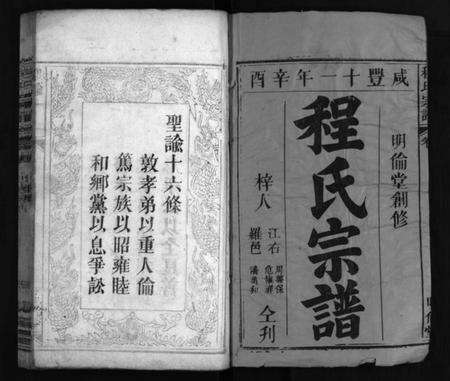 咸豐十一年辛酉
明倫堂創修
程氏宗譜
梓人
江右
羅邑
仝刋
聖諭十六條
敦孝弟以重人倫
篤宗族以昭雍睦
和鄉黨以息爭訟